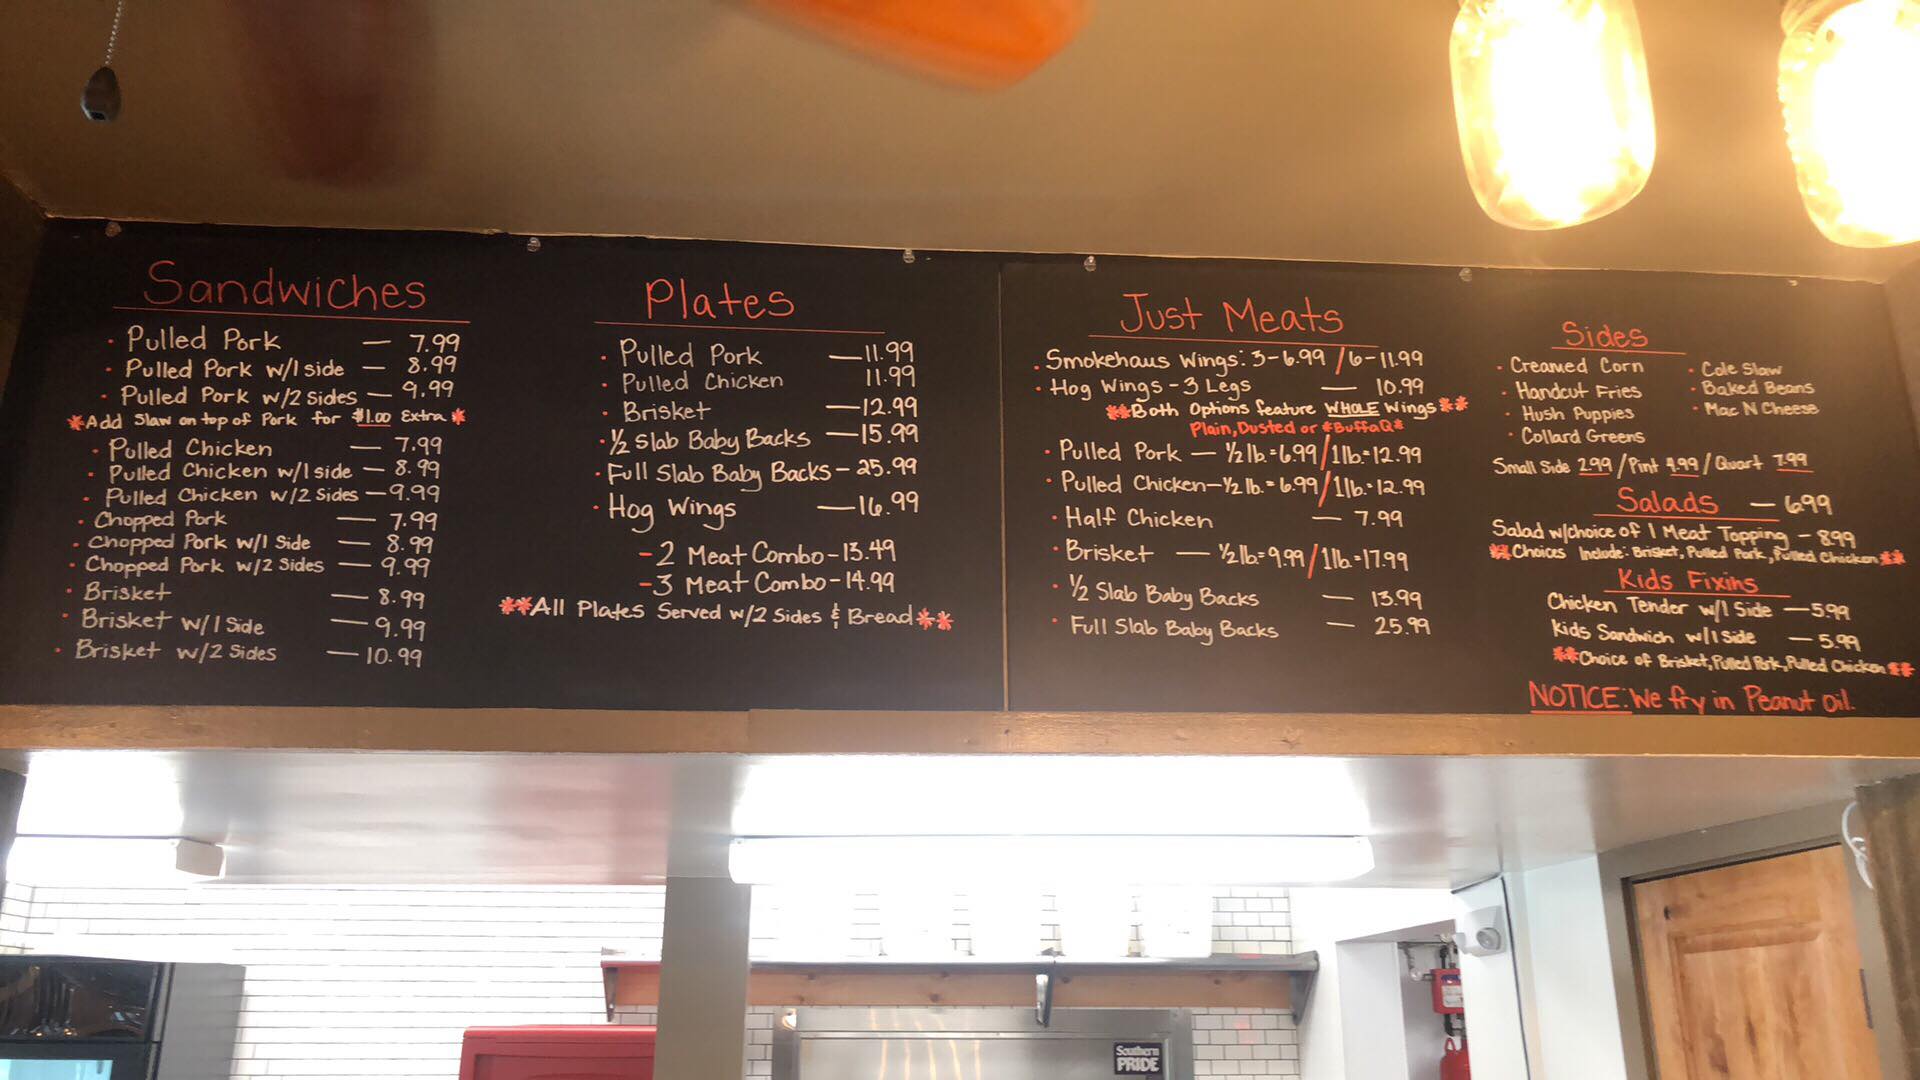 Sandwiches
Pulled Pork — 7.99
Pulled Pork w/1 side — 8.99
Pulled Pork w/2 Sides — 9.99
*Add Slaw on top of Pork for $1.00 Extra*
Pulled Chicken — 7.99
Pulled Chicken w/1 side — 8.99
Pulled Chicken w/2 Sides — 9.99
Chopped Pork — 7.99
Chopped Pork w/1 Side — 8.99
Chopped Pork w/2 Sides — 9.99
Brisket — 8.99
Brisket w/1 Side — 9.99
Brisket w/2 Sides — 10.99
Plates
Pulled Pork — 11.99
Pulled Chicken 11.99
Brisket — 12.99
1/2 Slab Baby Backs — 15.99
Full Slab Baby Backs - 25.99
Hog Wings — 16.99
- 2 Meat Combo - 13.49
- 3 Meat Combo - 14.99
**All Plates Served w/2 Sides & Bread**
Just Meats
Smokehaus Wings: 3 - 6.99 / 6 - 11.99
Hog Wings - 3 Legs — 10.99
**Both Options feature WHOLE Wings**
Plain, Dusted or *BuffaQ*
Pulled Pork — 1/2 lb. = 6.99 / 1 lb. = 12.99
Pulled Chicken — 1/2 lb. = 6.99 / 1 lb. = 12.99
Half Chicken — 7.99
Brisket — 1/2 lb. = 9.99 / 1 lb. = 17.99
1/2 Slab Baby Backs — 13.99
Full Slab Baby Backs — 25.99
Sides
Creamed Corn
Handcut Fries
Hush Puppies
Collard Greens
Cole Slaw
Baked Beans
Mac N Cheese
Small Side 2.99 / Pint 4.99 / Quart 7.99
Salads — 6.99
Salad w/choice of 1 Meat Topping - 8.99
**Choices Include: Brisket, Pulled Pork, Pulled Chicken**
Kids Fixins
Chicken Tender w/1 Side — 5.99
Kids Sandwich w/1 side — 5.99
**Choice of Brisket, Pulled Pork, Pulled Chicken**
NOTICE: We fry in Peanut Oil.
Southern
PRIDE